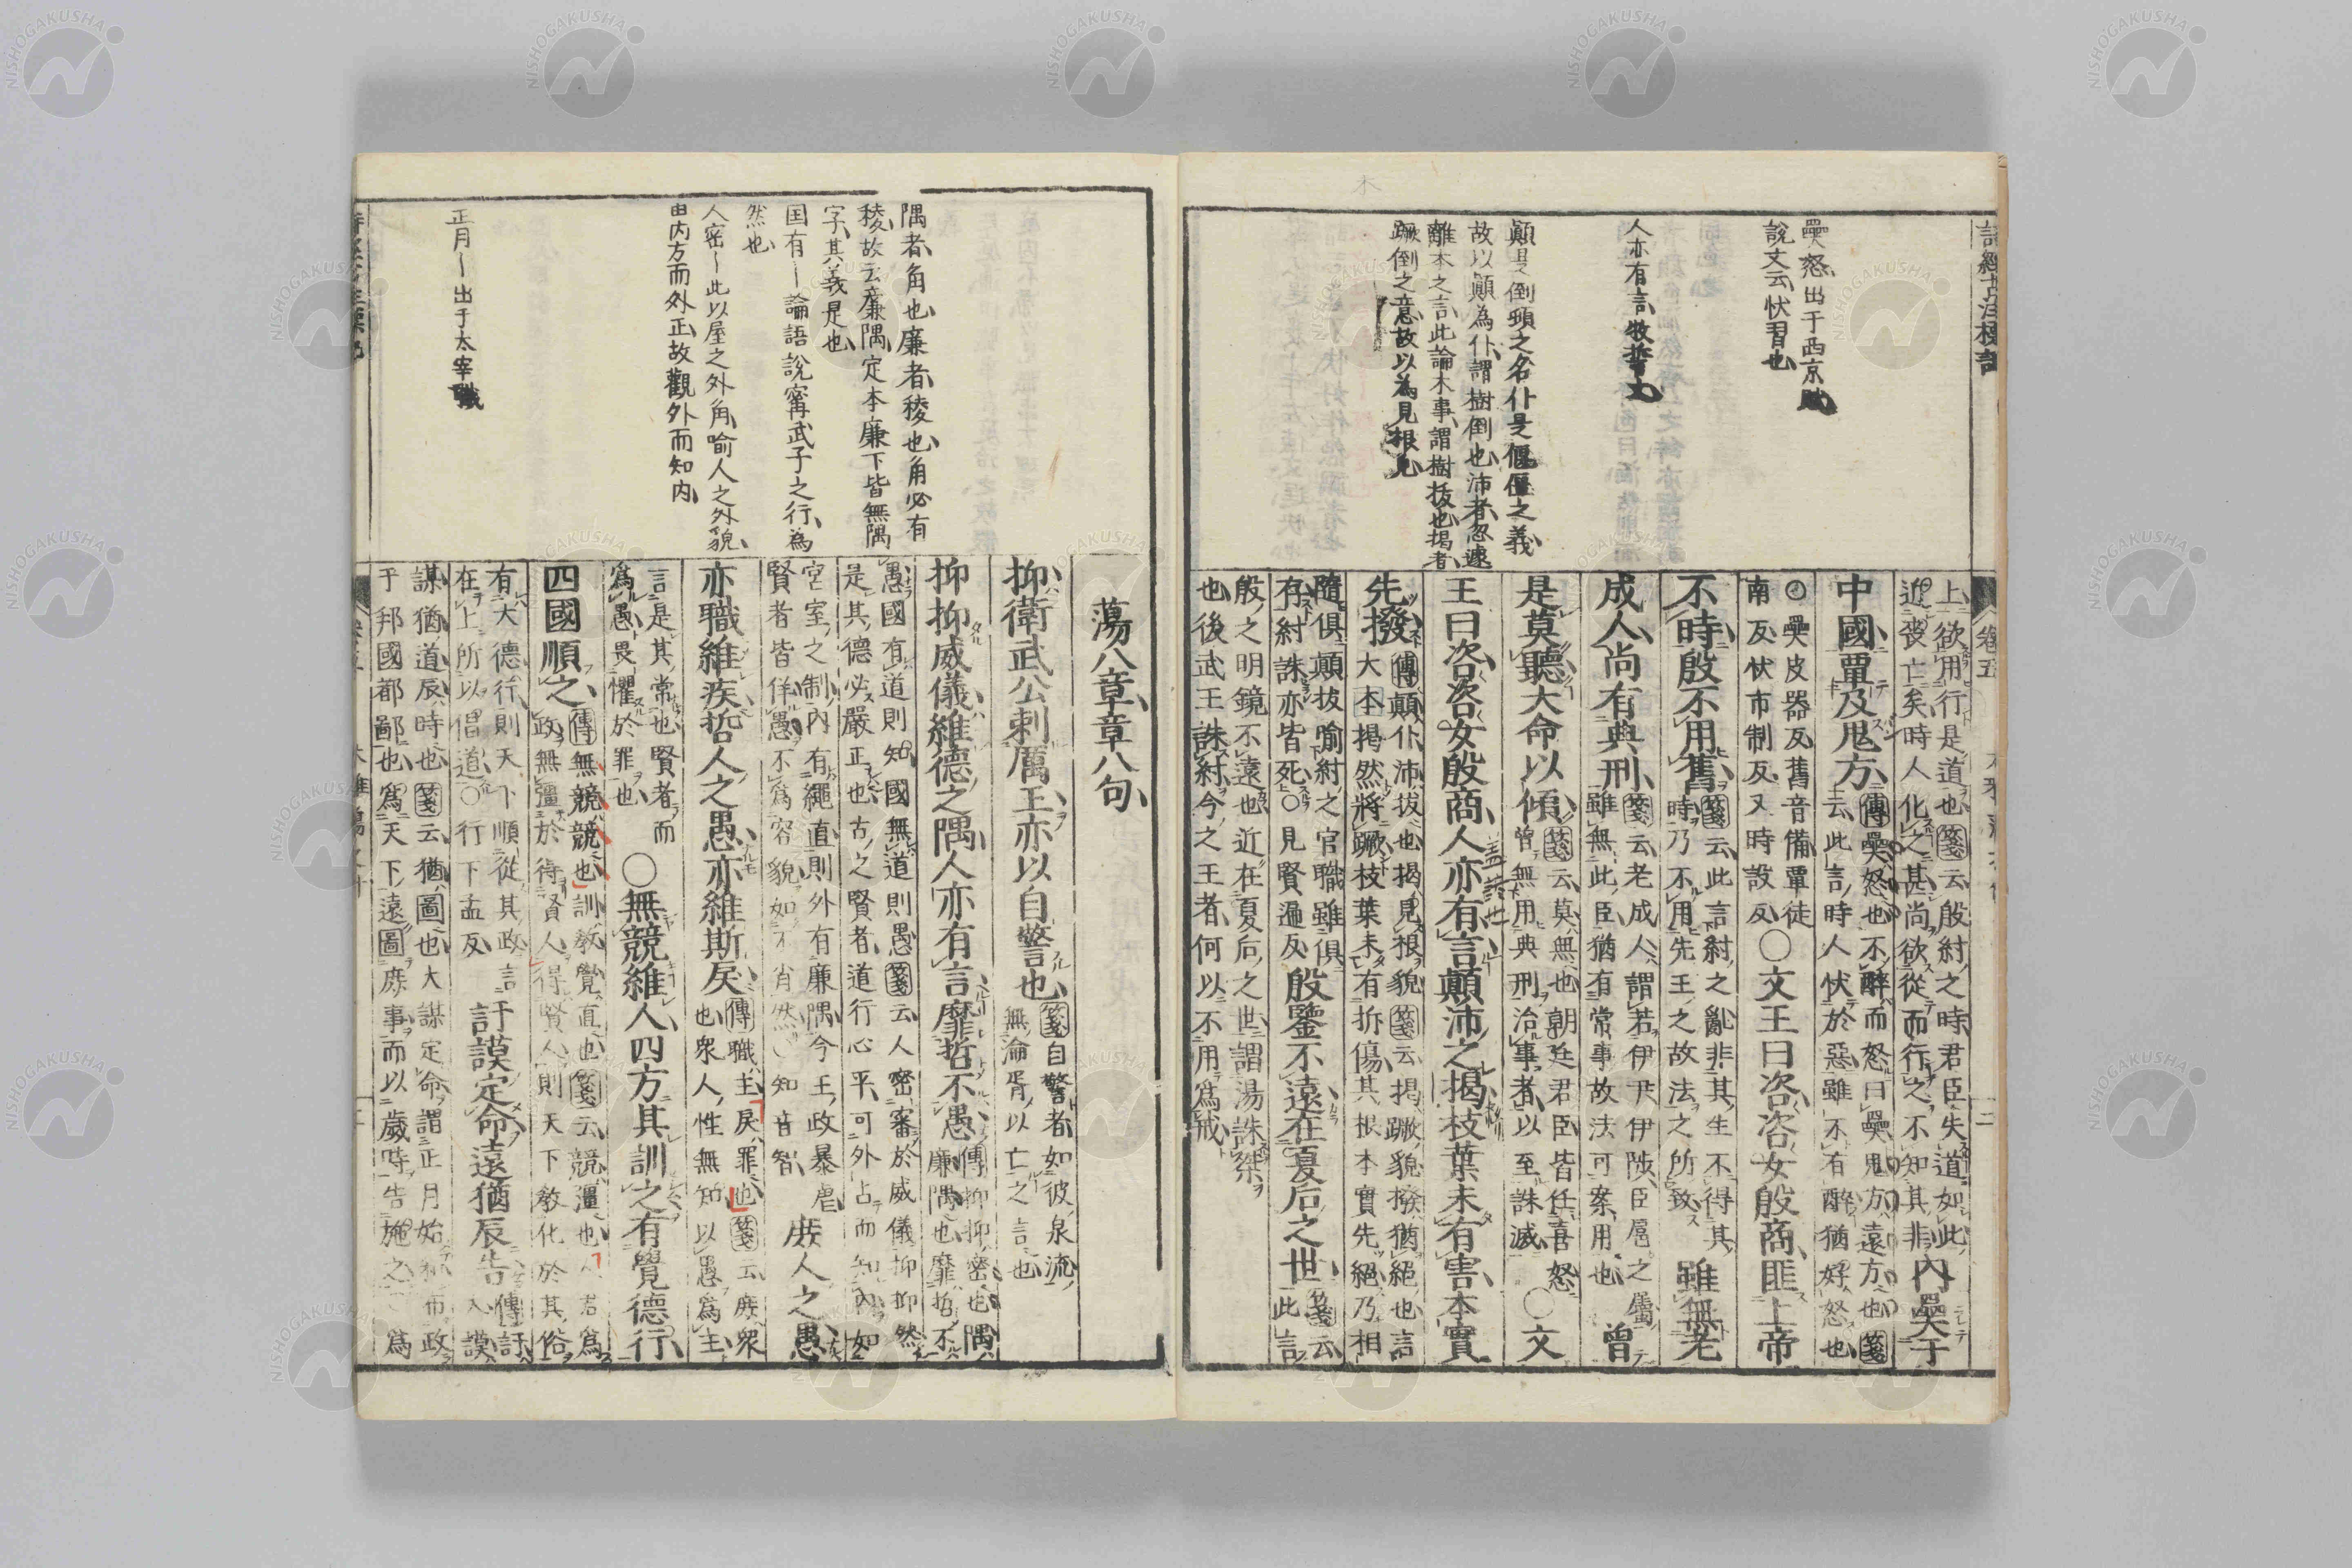 上欲用行是道也箋云殷紂之時君臣失道如此
近喪亡矣時人化之甚尚欲從而行之不知其非
內奰于
中國覃及鬼方
傳奰怒也不醉而怒曰奰鬼方遠方也箋
云此言時人忕於惡雖不有醉猶好怒也
奰皮器反舊音備覃徒
南反忕市制反又時設反
○文王曰咨咨女殷商匪上帝
不時殷不用舊
箋云此言紂之亂非其生不得其
時乃不用先王之故法之所致
雖無老
成人尚有典刑
箋云老成人謂若伊尹伊陟臣扈之屬
雖無此臣猶有常事故法可案用也
曾
是莫聽大命以傾
箋云莫無也朝廷君臣皆任喜怒
曾無用典刑治事者以至誅滅
○文
王曰咨咨女殷商人亦有言顛沛之揭枝葉未有害本實
先撥
傳顛仆沛拔也揭見根貌箋云揭蹶貌撥猶絕也言
大木揭然將蹶枝葉未有折傷其根本實先絕乃相
隨俱顛拔喻紂之官職雖俱
存紂誅亦皆死○見賢遍反
殷鑒不遠在夏后之世
箋云
此言
殷之明鏡不遠也近在夏后之世謂湯誅桀
也後武王誅紂今之王者何以不用爲戒
卷五
奰怒出于西京賦
說文云忕習也
人亦有言牧誓也
顛是倒頭之名仆是偃僵之義
故以顛為仆謂樹倒也沛者忽遽
離本之言此論木事謂樹拔也揭者
蹶倒之意故以為見根見
蕩八章章八句
抑衛武公刺厲王亦以自警也
箋自警者如彼泉流
無淪胥以亡之言也
抑抑威儀維德之隅人亦有言靡哲不愚
傳抑抑密也隅
廉隅也靡哲不
愚國有道則知國無道則愚箋云人密審於威儀抑抑然
是其德必嚴正也古之賢者道行心平可外占而知內如
宮室之制內有繩直則外有廉隅今王政暴虐
賢者皆佯愚不爲容貌如不肖然○知音智
庶人之愚
亦職維疾哲人之愚亦維斯戾
傳職主戾罪也箋云庶衆
也衆人性無知以愚爲主
言是其常也賢者而
爲愚畏懼於罪也
○無競維人四方其訓之有覺德行
四國順之
傳無競競也訓敎覺直也箋云競彊也人君爲
政無彊於得賢人得賢人則天下敎化於其俗
有大德行則天下順從其政言
在上所以倡道○行下孟反
訏謨定命遠猶辰告
傳訏
大謨
謀猶道辰時也箋云猶圖也大謀定命謂正月始和布政
于邦國都鄙也爲天下遠圖庶事而以歲時告施之
爲
隅者角也廉者稜也角必有
稜故云廉隅定本廉下皆無隅
字其義是也
国有〜論語說甯武子之行為
然也
人密〜此以屋之外角喻人之外貌
由內方而外正故觀外而知內
正月〜出于太宰職